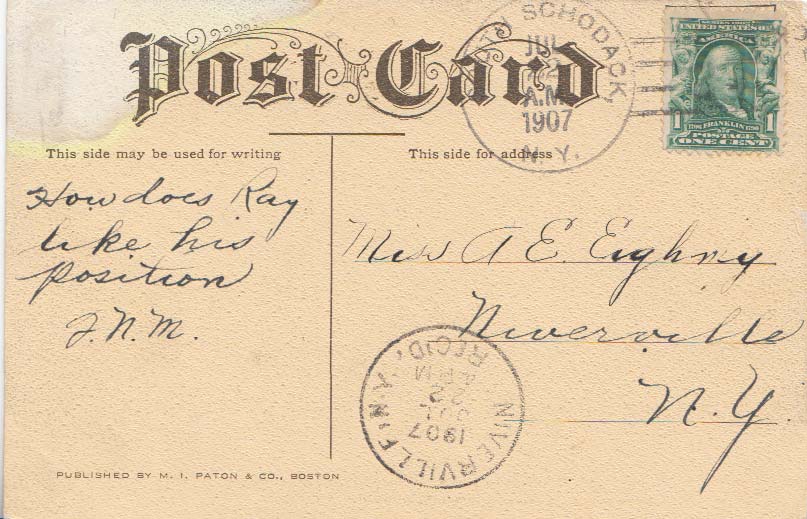 Post Card
SCHODACK,
JUL
22
A.M.
1907
N. Y.
UNITED STATES OF
AMERICA
1 FRANKLIN 1
POSTAGE
ONE CENT
This side may be used for writing
This side for address
How does Ray
like his
position
J.N.M.
Miss A E. Eighmy
Niverville
N.Y.
NIVERVILLE N.Y.
REC'D.
JUL
22
1907
PUBLISHED BY M. I. PATON & CO., BOSTON